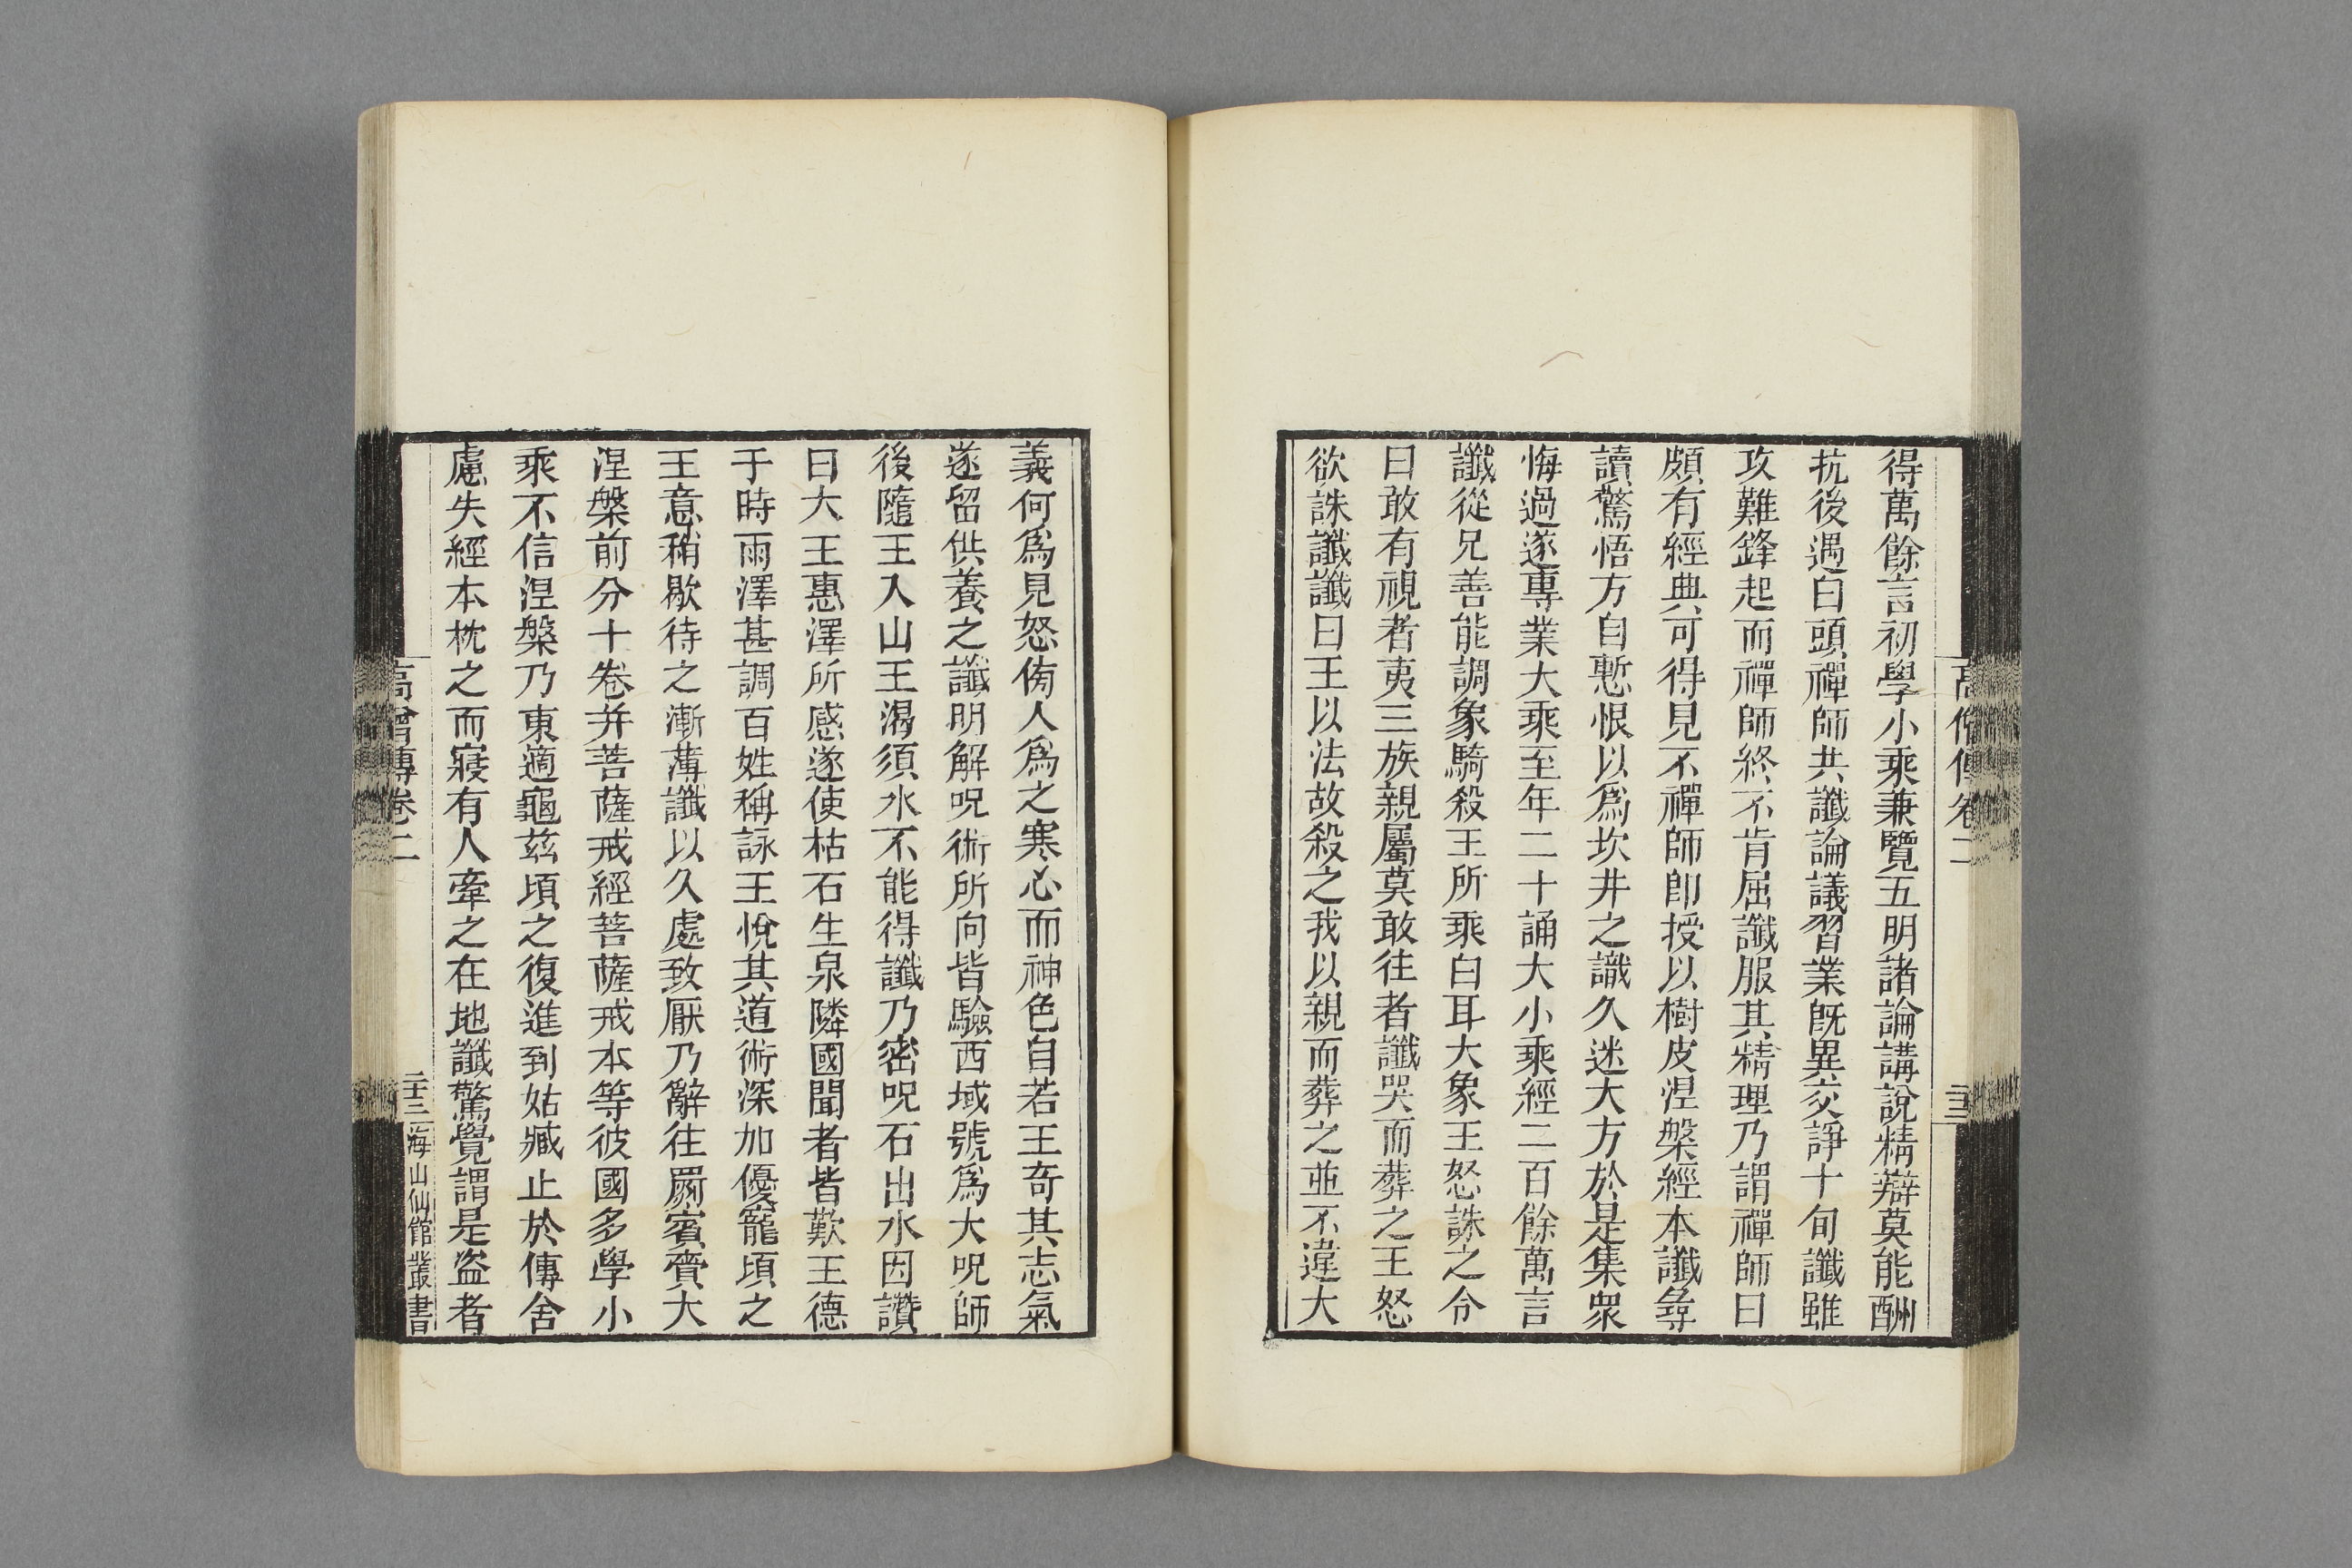 高僧傳卷二
得萬餘言初學小乘兼覽五明諸論講說精辯莫能酬
抗後遇白頭禪師共讖論議習業旣異交諍十旬讖雖
攻難鋒起而禪師終不肯屈讖服其精理乃謂禪師曰
頗有經典可得見不禪師卽授以樹皮涅槃經本讖尋
讀驚悟方自慙恨以爲坎井之識久迷大方於是集衆
悔過遂專業大乘至年二十誦大小乘經二百餘萬言
讖從兄善能調象騎殺王所乘白耳大象王怒誅之令
曰敢有視者夷三族親屬莫敢往者讖哭而葬之王怒
欲誅讖讖曰王以法故殺之我以親而葬之並不違大
義何爲見怒傍人爲之寒心而神色自若王奇其志氣
遂留供養之讖明解呪術所向皆驗西域號爲大呪師
後隨王入山王渴須水不能得讖乃密呪石出水因讚
曰大王惠澤所感遂使枯石生泉隣國聞者皆歎王德
于時雨澤甚調百姓稱詠王悅其道術深加優寵頃之
王意稍歇待之漸薄讖以久處致厭乃辭往罽賓齎大
涅槃前分十卷并菩薩戒經菩薩戒本等彼國多學小
乘不信涅槃乃東適龜茲頃之復進到姑臧止於傳舍
慮失經本枕之而寢有人牽之在地讖驚覺謂是盜者
高僧傳卷二
二十三
海山仙館叢書